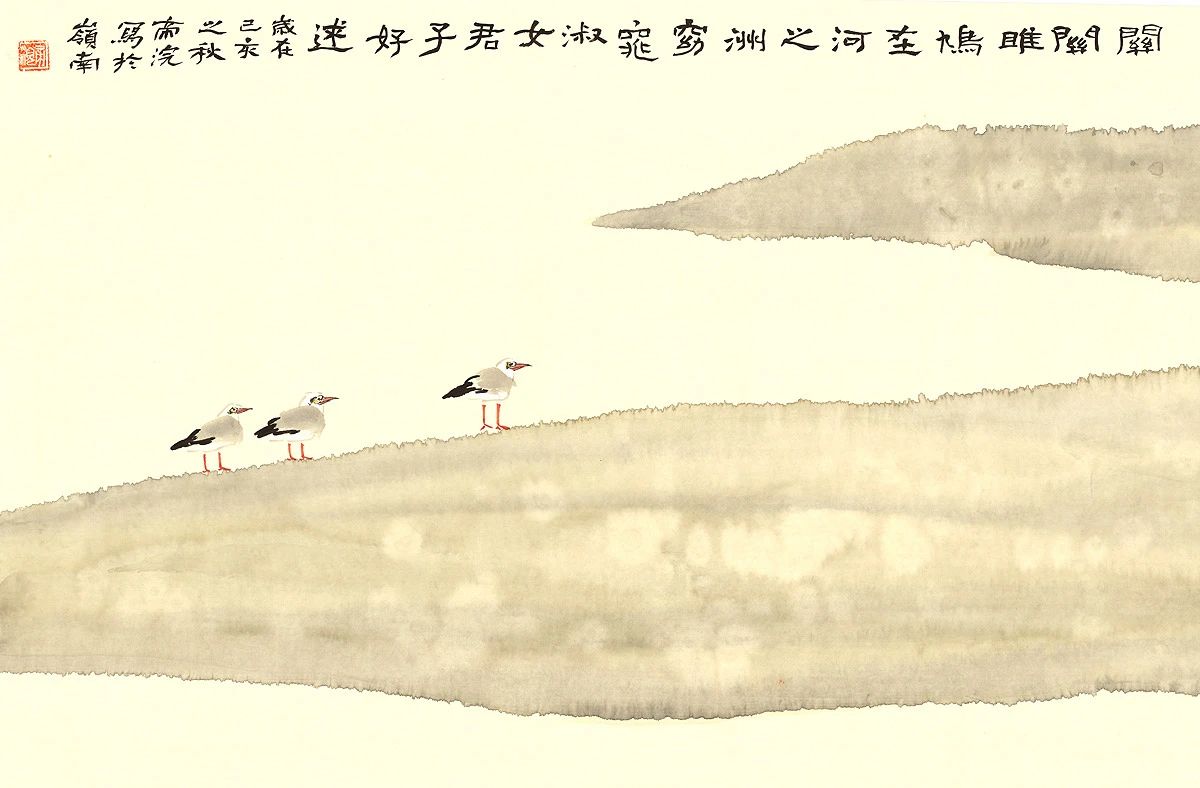 關關雎鳩在河之洲窈窕淑女君子好逑
歲在
己亥
之秋
寫於
嶺南